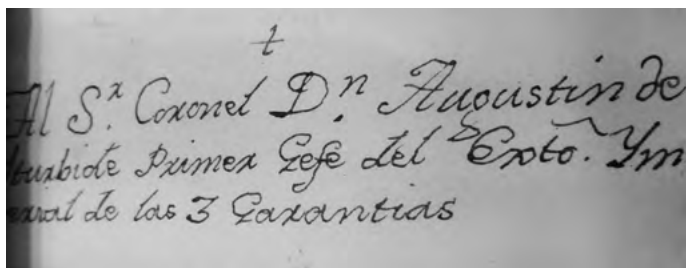 t
Al S.r Coronel D.n Augustin de
Iturbide Primer Gefe del Exto. Ym
peral de las 3 Garantias